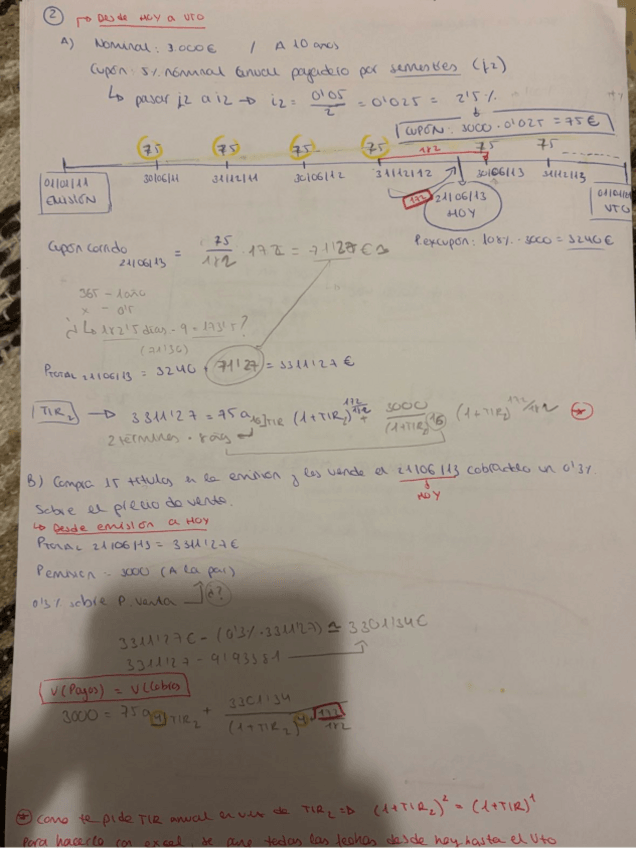 ② → Desde HOY a VTO
A) Nominal: 3.000€ / A 10 años
Cupón: 5% nominal anual pagadero por semestres (j2)
↳ pasar j2 a i2 → i2 = 0'05/2 = 0'025 = 2'5%
CUPÓN: 3000 · 0'025 = 75€
75 75 75 75 182 75 75
01/01/11 EMISIÓN 30/06/11 31/12/11 30/06/12 31/12/12 172 21/06/13 HOY 30/06/13 31/12/13 VTO
Cupón corrido 21/06/13 = 75/182 · 172 = 71'27€
P.excupón: 108% · 3000 = 3240€
365 - 1 año
x - 0'5
↳ 182'5 días - 9 = 173'5?
(71'30)
PTOTAL 21/06/13 = 3240 + 71'27 = 3311'27€
TIR2 → 3311'27 = 75 a16|TIR (1+TIR2)^172/182 + 3000/(1+TIR2)^16 (1+TIR2)^172/182 ⊛
2 términos · 8 años
B) Compra 15 títulos en la emisión y los vende el 21/06/13 cobrándole un 0'3%
HOY
sobre el precio de venta.
↳ Desde emisión a HOY
PTOTAL 21/06/13 = 3311'27€
Pemisión = 3000 (A la par)
0'3% sobre P. venta ?
3311'27€ - (0'3% · 3311'27) = 3301'34€
3311'27 - 9'93381
V(Pagos) = V(Cobros)
3000 = 75 a4|TIR2 + 3301'34/(1+TIR2)^4+172/182
⊛ Como te pide TIR anual en vez de TIR2 ⇒ (1+TIR2)^2 = (1+TIR)^1
Para hacerlo con excel, se pone todas las fechas desde hoy hasta el Vto